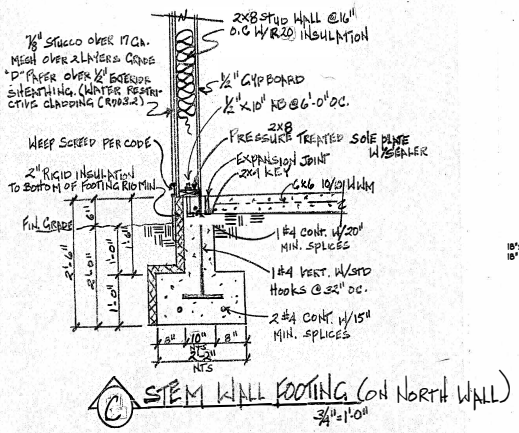 2X8 STUD WALL @ 16"
O.C W/R20 INSULATION
7/8" STUCCO OVER 17 GA.
MESH OVER 2 LAYERS GRADE
"D" PAPER OVER 1/2" EXTERIOR
SHEATHING. (WATER RESTRI-
CTIVE CLADDING (R703.2)
1/2" GYPBOARD
1/2" X 10" AB @ 6'-0" OC.
WEEP SCREED PER CODE
2X8
PRESSURE TREATED SOLE PLATE
W/SEALER
EXPANSION JOINT
2X4 KEY
2" RIGID INSULATION
TO BOTTOM OF FOOTING R10 MIN.
6X6 10/10 WWM
FIN. GRADE
6"
1'-6"
1'-0"
1'-0"
2'-0"
2'-6"
1 #4 CONT. W/20"
MIN. SPLICES
1 #4 VERT. W/STD
HOOKS @ 32" OC.
2 #4 CONT. W/15"
MIN. SPLICES
8" 10" 8"
NTS
2'-2"
NTS
18"
18"
C STEM WALL FOOTING (ON NORTH WALL)
3/4"=1'-0"